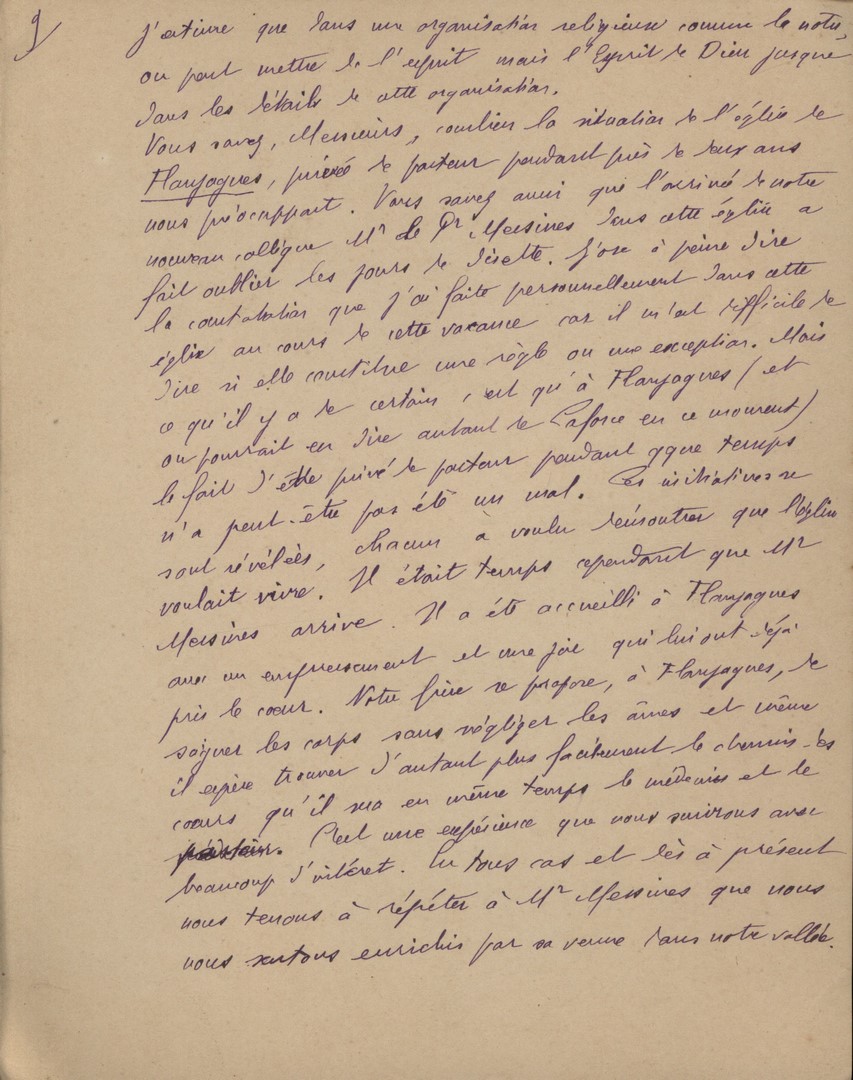 9
J'estime que dans une organisation religieuse comme la notre,
on peut mettre de l'esprit mais l'Esprit de Dieu jusque
dans les détails de cette organisation.
Vous savez, Messieurs, combien la situation de l'église de
Flaujagues, privée de pasteur pendant près de deux ans
nous préoccupait. Vous savez aussi que l'arrivée de notre
nouveau collègue Mr le Dr Messines dans cette église a
fait oublier les jours de disette. J'ose à peine dire
la constatation que j'ai faite personnellement dans cette
église au cours de cette vacance car il m'est difficile de
dire si elle constitue une règle ou une exception. Mais
ce qu'il y a de certain, c'est qu'à Flaujagues (et
on pourrait en dire autant de Laforce en ce moment)
le fait d'être privé de pasteur pendant qque temps
n'a peut-être pas été un mal. Des initiatives se
sont révélées, chacun a voulu démontrer que l'église
voulait vivre. Il était temps cependant que Mr
Messines arrive. Il a été accueilli à Flaujagues
avec un empressement et une joie qui lui ont déjà
pris le coeur. Notre frère se propose, à Flaujagues, de
soigner les corps sans négliger les âmes et même
il espère trouver d'autant plus facilement le chemin des
coeurs qu'il sera en même temps le médecin et le
pasteur. C'est une expérience que nous suivrons avec
beaucoup d'intéret. En tous cas et dès à présent
nous tenons à répéter à Mr Messines que nous
nous sentons enrichis par sa venue dans notre vallée.